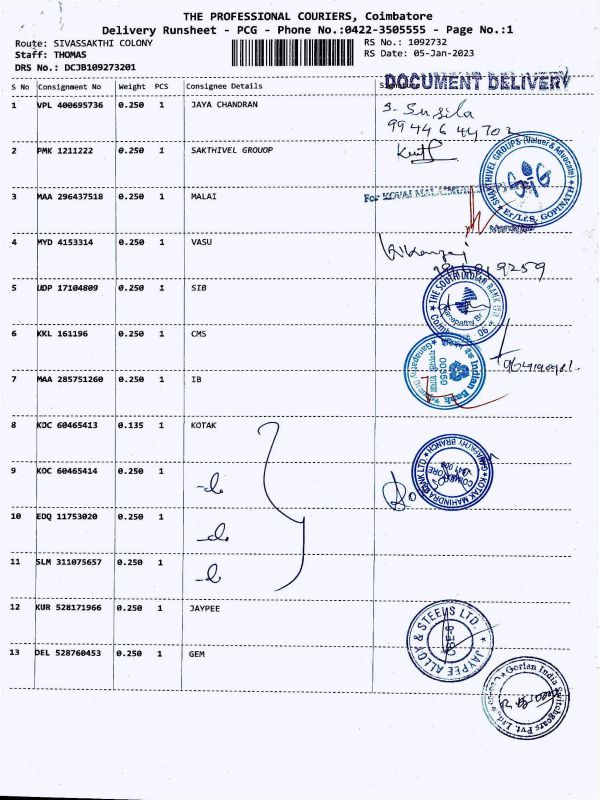 THE PROFESSIONAL COURIERS, Coimbatore
Delivery Runsheet - PCG - Phone No.:0422-3505555 - Page No.:1
Route: SIVASSAKTHI COLONY
RS No.: 1092732
Staff: THOMAS
RS Date: 05-Jan-2023
DRS No.: DCJB109273201
DOCUMENT DELIVERY
S No Consignment No Weight PCS Consignee Details
1 VPL 400695736 0.250 1 JAYA CHANDRAN
S. Susila
2 PMK 1211222 0.250 1 SAKTHIVEL GROUOP
SHAKTHIVEL GROUPS (Valuer & Advocate)
Er/Lr.S. GOPINATH
3 MAA 296437518 0.250 1 MALAI
For KOVAI
4 MYD 4153314 0.250 1 VASU
9259
5 UDP 17104809 0.250 1 SIB
THE SOUTH INDIAN BANK
Ganapathy Br.
6 KKL 161196 0.250 1 CMS
Indian Bank
00350
Ganapathy
7 MAA 285751260 0.250 1 IB
8 KOC 60465413 0.135 1 KOTAK
KOTAK MAHINDRA BANK LTD.
GANAPATHY BRANCH
COIMBATORE
9 KOC 60465414 0.250 1
10 EDQ 11753020 0.250 1
11 SLM 311075657 0.250 1
12 KUR 528171966 0.250 1 JAYPEE
JAYPEE ALLOY & STEELS LTD
13 DEL 528760453 0.250 1 GEM
Gorlan India Switchgears Pvt. Ltd.